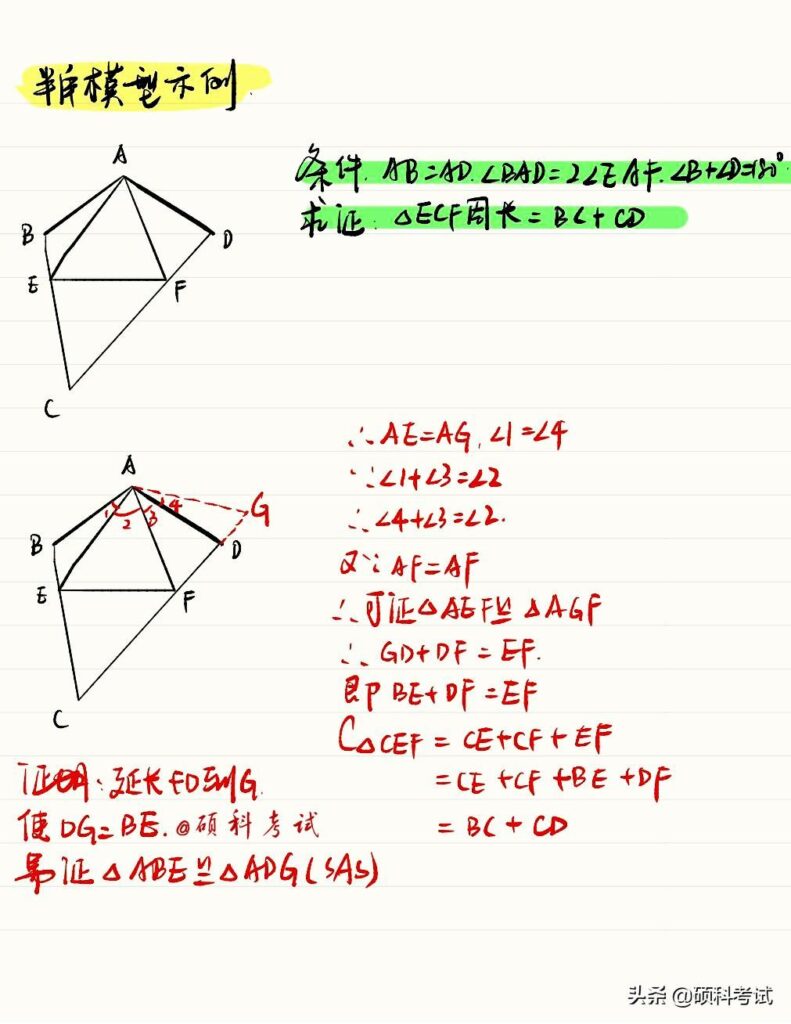 半角模型示例
A
条件. AB=AD. ∠BAD=2∠EAF. ∠B+∠D=180°
求证: △ECF周长=BC+CD
B
D
E
F
C
∴AE=AG, ∠1=∠4
∵∠1+∠3=∠2
∴∠4+∠3=∠2.
又∵AF=AF
∴可证△AEF≌△AGF
∴GD+DF=EF.
即BE+DF=EF
C△CEF=CE+CF+EF
=CE+CF+BE+DF
=BC+CD
A
1
2
3
4
G
B
D
E
F
C
证明: 延长FD到G
使DG=BE. @硕科考试
易证△ABE≌△ADG(SAS)
头条 @硕科考试